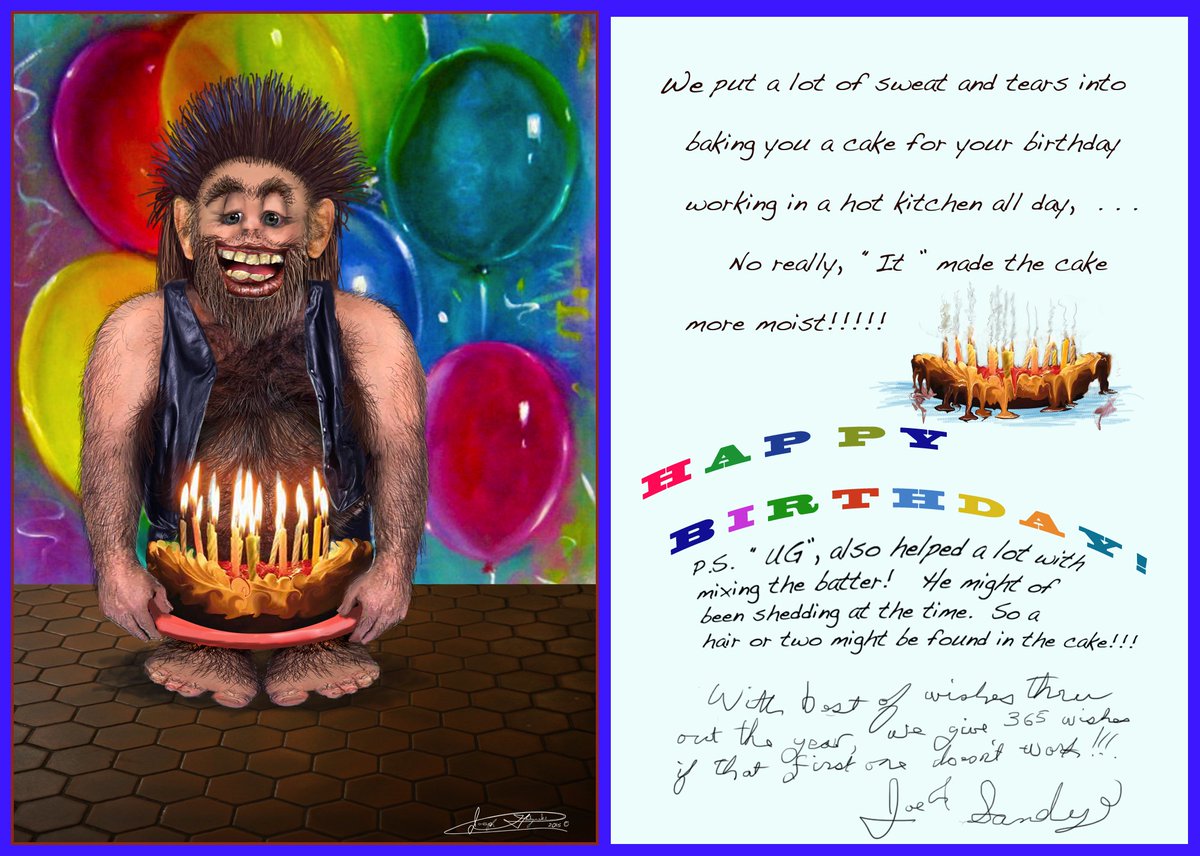 We put a lot of sweat and tears into
baking you a cake for your birthday
working in a hot kitchen all day, ...
No really, "It" made the cake
more moist!!!!!
HAPPY
BIRTHDAY!
P.S. "UG", also helped a lot with
mixing the batter! He might of
been shedding at the time. So a
hair or two might be found in the cake!!!
With best of wishes thru
out the year, we give 365 wishes
if that first one doesn't work!!!
Joe & Sandy
2015 ©